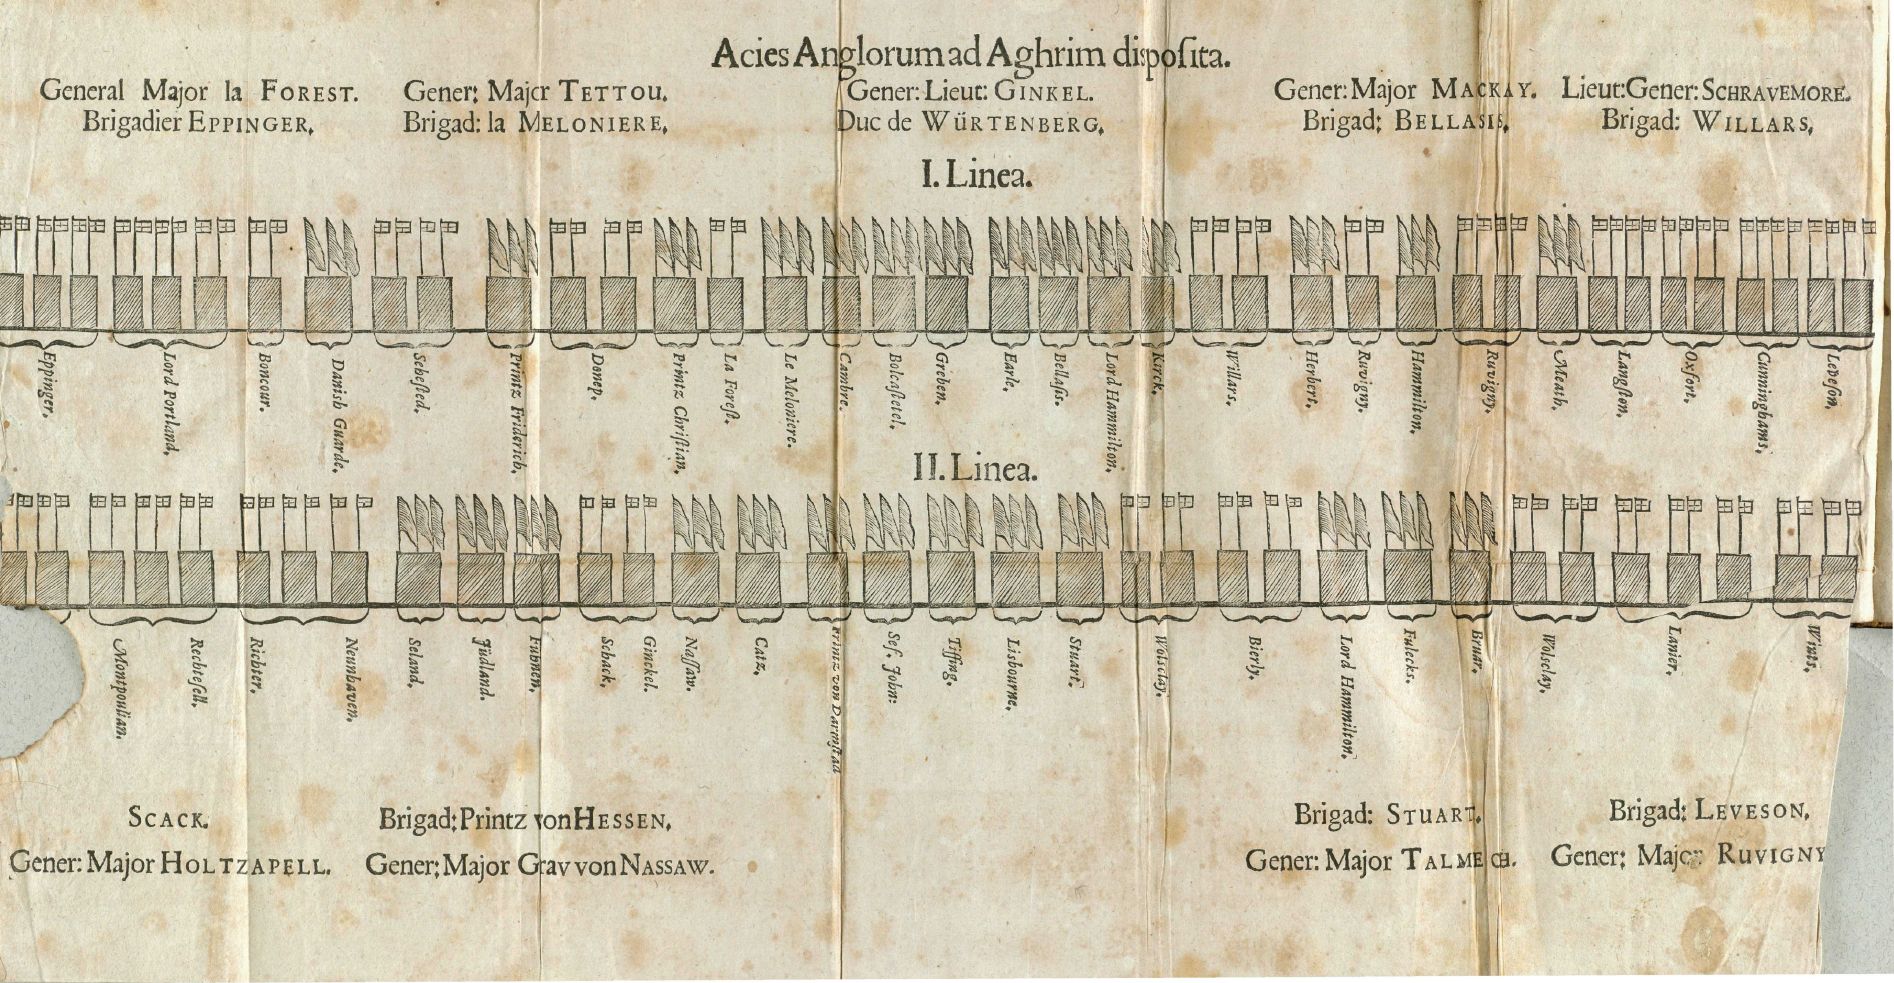 Acies Anglorum ad Aghrim disposita.
General Major la FOREST.
Brigadier EPPINGER,
Gener: Major TETTOU.
Brigad: la MELONIERE,
Gener: Lieut: GINKEL.
Duc de WÜRTENBERG,
Gener: Major MACKAY.
Brigad: BELLASIS,
Lieut: Gener: SCHRAVEMORE.
Brigad: WILLARS,
I. Linea.
Eppinger.
Lord Portland.
Boncour.
Danish Guarde.
Sebested.
Printz Friderich.
Donep.
Printz Christian.
La Forest.
Le Meloniere.
Cambre.
Bolcastetel.
Greben.
Earle.
Bellass.
Lord Hammilton.
Kirck.
Willars.
Herbert.
Ruvigny.
Hammilton.
Ruvigny.
Meath.
Langston.
Oxfort.
Cunninghams.
Leveson.
II. Linea.
Montpoulian.
Rechtesell.
Richter.
Neunhaven.
Seland.
Jüdland.
Fubnen.
Schack.
Ginckel.
Nassaw.
Catz.
Printz von Darmstad
Sef. John:
Tiffing.
Lisbourne.
Stuart.
Wolsclay.
Bierly.
Lord Hammilton.
Fulecks.
Bruar.
Wolsclay.
Lanier.
Wints.
SCACK.
Gener: Major HOLTZAPELL.
Brigad: Printz von HESSEN,
Gener: Major Grav von NASSAW.
Brigad: STUART,
Gener: Major TALMECH.
Brigad: LEVESON,
Gener: Major RUVIGNY